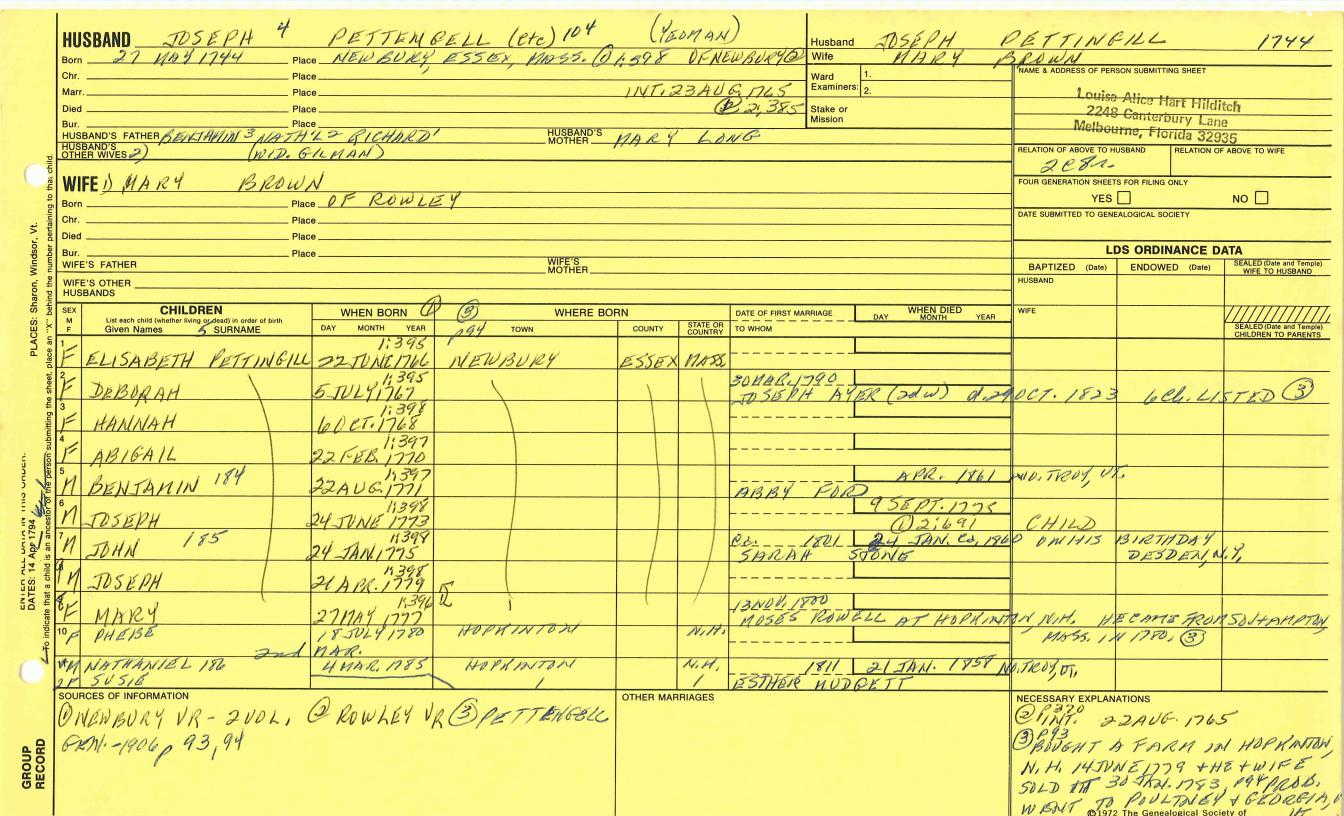 HUSBAND JOSEPH 4 PETTENGELL (etc) 104 (YEOMAN)
Born 27 MAY 1744 Place NEWBURY, ESSEX, MASS. ① 1:398 OF NEWBURY ②
Chr. Place
Marr. Place INT. 23 AUG, 1765
Died Place ② 2,385
Bur. Place
HUSBAND'S FATHER BENJAMIN 3 NATH'L 2 RICHARD 1 HUSBAND'S MOTHER MARY LONG
HUSBAND'S OTHER WIVES 2) (WID. GILMAN)
Husband JOSEPH PETTINGILL 1744
Wife MARY BROWN
Ward Examiners: 1.
2.
Stake or Mission
NAME & ADDRESS OF PERSON SUBMITTING SHEET
Louise Alice Hart Hilditch
2248 Canterbury Lane
Melbourne, Florida 32935
RELATION OF ABOVE TO HUSBAND RELATION OF ABOVE TO WIFE
2C8r.
FOUR GENERATION SHEETS FOR FILING ONLY
YES NO
DATE SUBMITTED TO GENEALOGICAL SOCIETY
WIFE 1) MARY BROWN
Born Place OF ROWLEY
Chr. Place
Died Place
Bur. Place
WIFE'S FATHER WIFE'S MOTHER
WIFE'S OTHER HUSBANDS
LDS ORDINANCE DATA
BAPTIZED (Date) ENDOWED (Date) SEALED (Date and Temple) WIFE TO HUSBAND
HUSBAND
WIFE
SEALED (Date and Temple) CHILDREN TO PARENTS
SEX M F CHILDREN WHEN BORN ① ③ WHERE BORN DATE OF FIRST MARRIAGE WHEN DIED
List each child (whether living or dead) in order of birth
Given Names 5 SURNAME DAY MONTH YEAR p94 TOWN COUNTY STATE OR COUNTRY TO WHOM DAY MONTH YEAR
1:395
1 F ELISABETH PETTINGILL 22 JUNE 1766 NEWBURY ESSEX MASS
1:395 30 MAR. 1790
2 F DEBORAH 5 JULY 1767 JOSEPH AYER (2d w) d. 29 OCT. 1823 6 Ch. LISTED ③
1:398
3 F HANNAH 6 OCT. 1768
1:397
4 F ABIGAIL 22 FEB. 1770
1:397 APR. 1861 NO. TROY, VT.
5 M BENJAMIN 184 22 AUG. 1771 ABBY FORD
1:398 9 SEPT. 1775
6 M JOSEPH 24 JUNE 1773 ① 2:691 CHILD
1:398 Ca. 1801 24 JAN. Ca, 1860 ON HIS BIRTHDAY
7 M JOHN 185 24 JAN 1775 SARAH STONE DESDEN, N.Y,
1:398
M JOSEPH 21 APR. 1779
1:396 13 NOV. 1800
F MARY 27 MAY 1777 MOSES ROWELL AT HOPKINTON, N.H. HE CAME FROM SOUTHAMPTON,
10 F PHEBE 18 JULY 1780 HOPKINTON N.H. MASS. IN 1780. ③
2nd MAR.
M NATHANIEL 186 4 MAR. 1785 HOPKINTON N.H. 1811 21 JAN. 1858 NO. TROY, VT,
F SUSIE ESTHER MUDGETT
SOURCES OF INFORMATION
① NEWBURY VR - 2 VOL, ② ROWLEY VR ③ PETTENGELL
GEN. - 1906 p 93, 94
OTHER MARRIAGES
NECESSARY EXPLANATIONS
② P370
INT. 22 AUG. 1765
③ P93
BOUGHT A FARM IN HOPKINTON,
N.H. 14 JUNE 1779 + HE + WIFE
SOLD IT 30 JAN. 1783, p94 PROB.
WENT TO POULTNEY & GEORGIA,
©1972 The Genealogical Society of
PLACES: Sharon, Windsor, Vt.
ENTER ALL DATA IN THIS ORDER:
DATES: 14 Apr 1794
To indicate that a child is an ancestor of the person submitting the sheet, place an "X" behind the number pertaining to that child.
GROUP RECORD